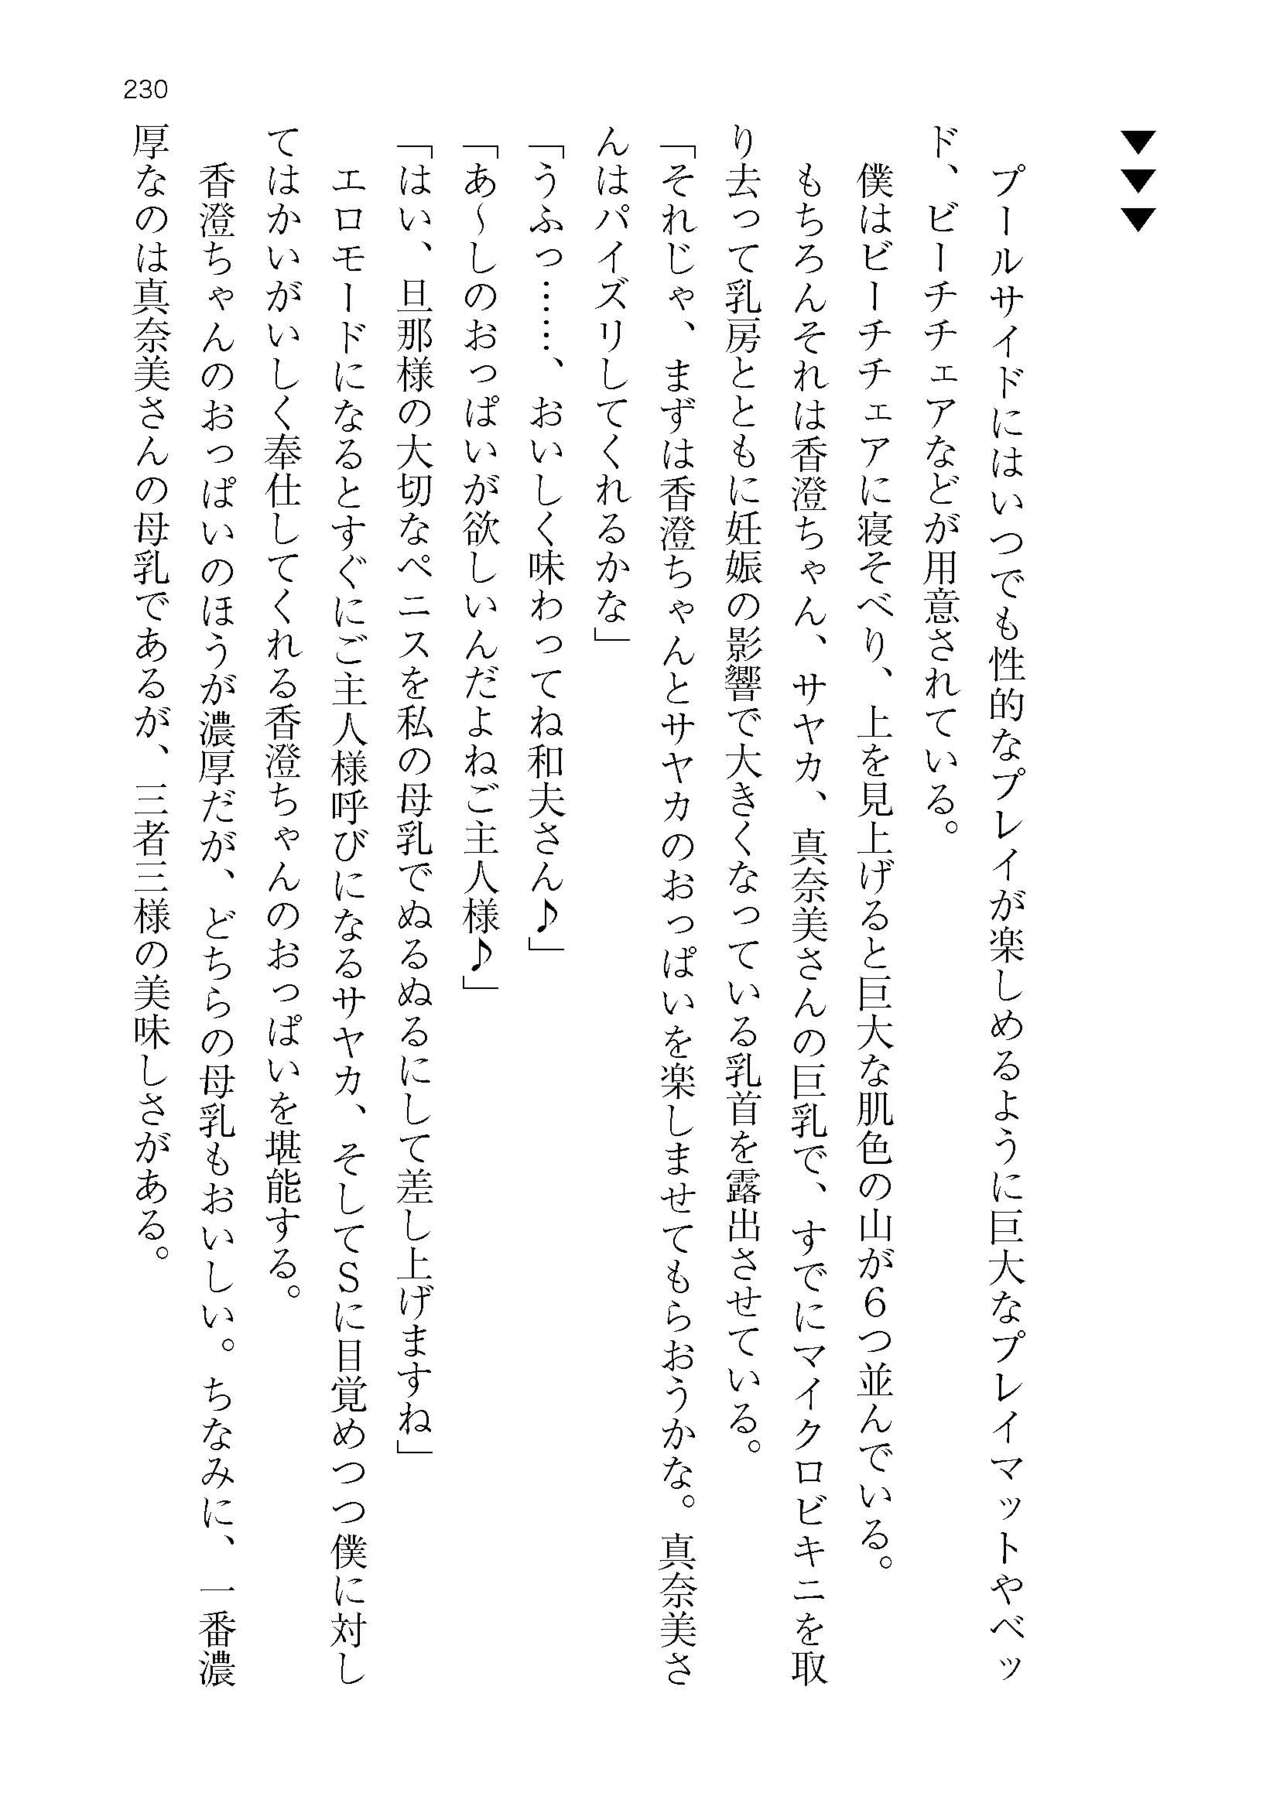 230
▼▼▼
プールサイドにはいつでも性的なプレイが楽しめるように巨大なプレイマットやベッ
ド、ビーチチェアなどが用意されている。
僕はビーチチェアに寝そべり、上を見上げると巨大な肌色の山が６つ並んでいる。
もちろんそれは香澄ちゃん、サヤカ、真奈美さんの巨乳で、すでにマイクロビキニを取
り去って乳房とともに妊娠の影響で大きくなっている乳首を露出させている。
「それじゃ、まずは香澄ちゃんとサヤカのおっぱいを楽しませてもらおうかな。真奈美さ
んはパイズリしてくれるかな」
「うふっ……、おいしく味わってね和夫さん♪」
「あ～しのおっぱいが欲しいんだよねご主人様♪」
「はい、旦那様の大切なペニスを私の母乳でぬるぬるにして差し上げますね」
エロモードになるとすぐにご主人様呼びになるサヤカ、そしてＳに目覚めつつ僕に対し
てはかいがいしく奉仕してくれる香澄ちゃんのおっぱいを堪能する。
香澄ちゃんのおっぱいのほうが濃厚だが、どちらの母乳もおいしい。ちなみに、一番濃
厚なのは真奈美さんの母乳であるが、三者三様の美味しさがある。